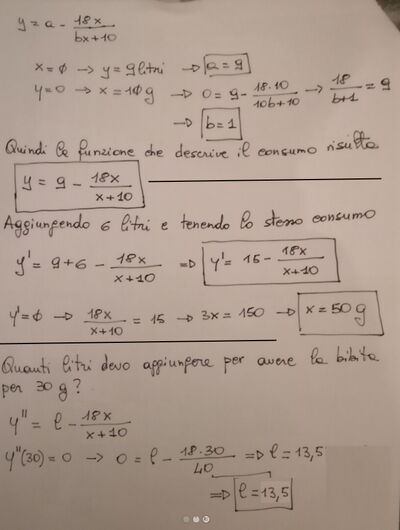 y = a - 18x/bx+10
x = ϕ → y = 9 litri → a = 9
y = 0 → x = 10 g → 0 = 9 - 18·10/10b+10 → 18/b+1 = 9
→ b = 1
Quindi la funzione che descrive il consumo risulta
y = 9 - 18x/x+10
Aggiungendo 6 litri e tenendo lo stesso consumo
y' = 9+6 - 18x/x+10 ⇒ y' = 15 - 18x/x+10
y' = ϕ → 18x/x+10 = 15 → 3x = 150 → x = 50 g
Quanti litri devo aggiungere per avere la bibita
per 30 g?
y'' = l - 18x/x+10
y''(30) = 0 → 0 = l - 18·30/40 ⇒ l = 13,5
⇒ l = 13,5